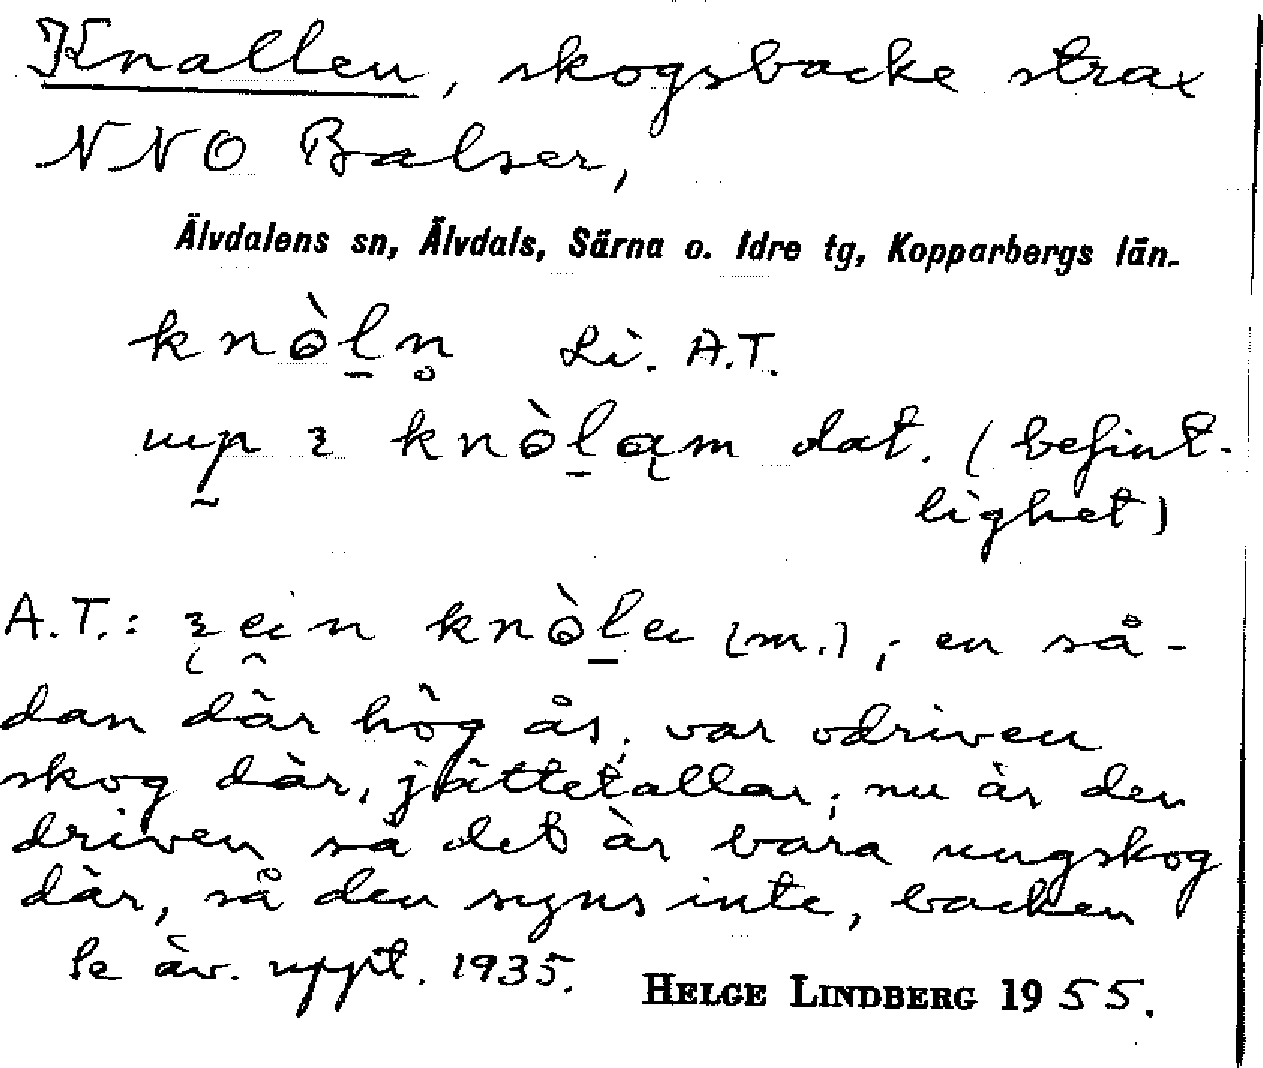 Knallen, skogsbacke strax
NNO Balser,
Älvdalens sn, Älvdals, Särna o. Idre tg, Kopparbergs län.
knòl̠n̥ Li. A.T.
dat. (befint-
lighet)
A.T.: (m.); en så-
dan där hög ås; var odriven
skog där, jättetallar; nu är den
driven så det är bara ungskog
där, så den syns inte, backen
Se äv. uppt. 1935. HELGE LINDBERG 1955.